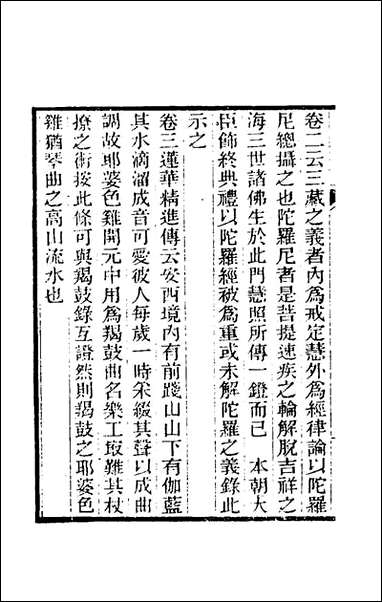 卷二云三藏之義者內爲戒定慧外爲經律論以陀羅
尼總攝之也陀羅尼者是菩提速疾之輪解脫吉祥之
海三世諸佛生於此門慧照所傳一鐙而已　本朝大
臣飾終典禮以陀羅經被爲重或未解陀羅之義錄此
示之
卷三蓮華精進傳云安西境內有前踐山山下有伽藍
其水滴溜成音可愛彼人每歲一時采綴其聲以成曲
調故耶婆色雞開元中用爲羯鼓曲名樂工取難其杖
撩之術按此條可與羯鼓錄互證然則羯鼓之耶婆色
雞猶琴曲之高山流水也